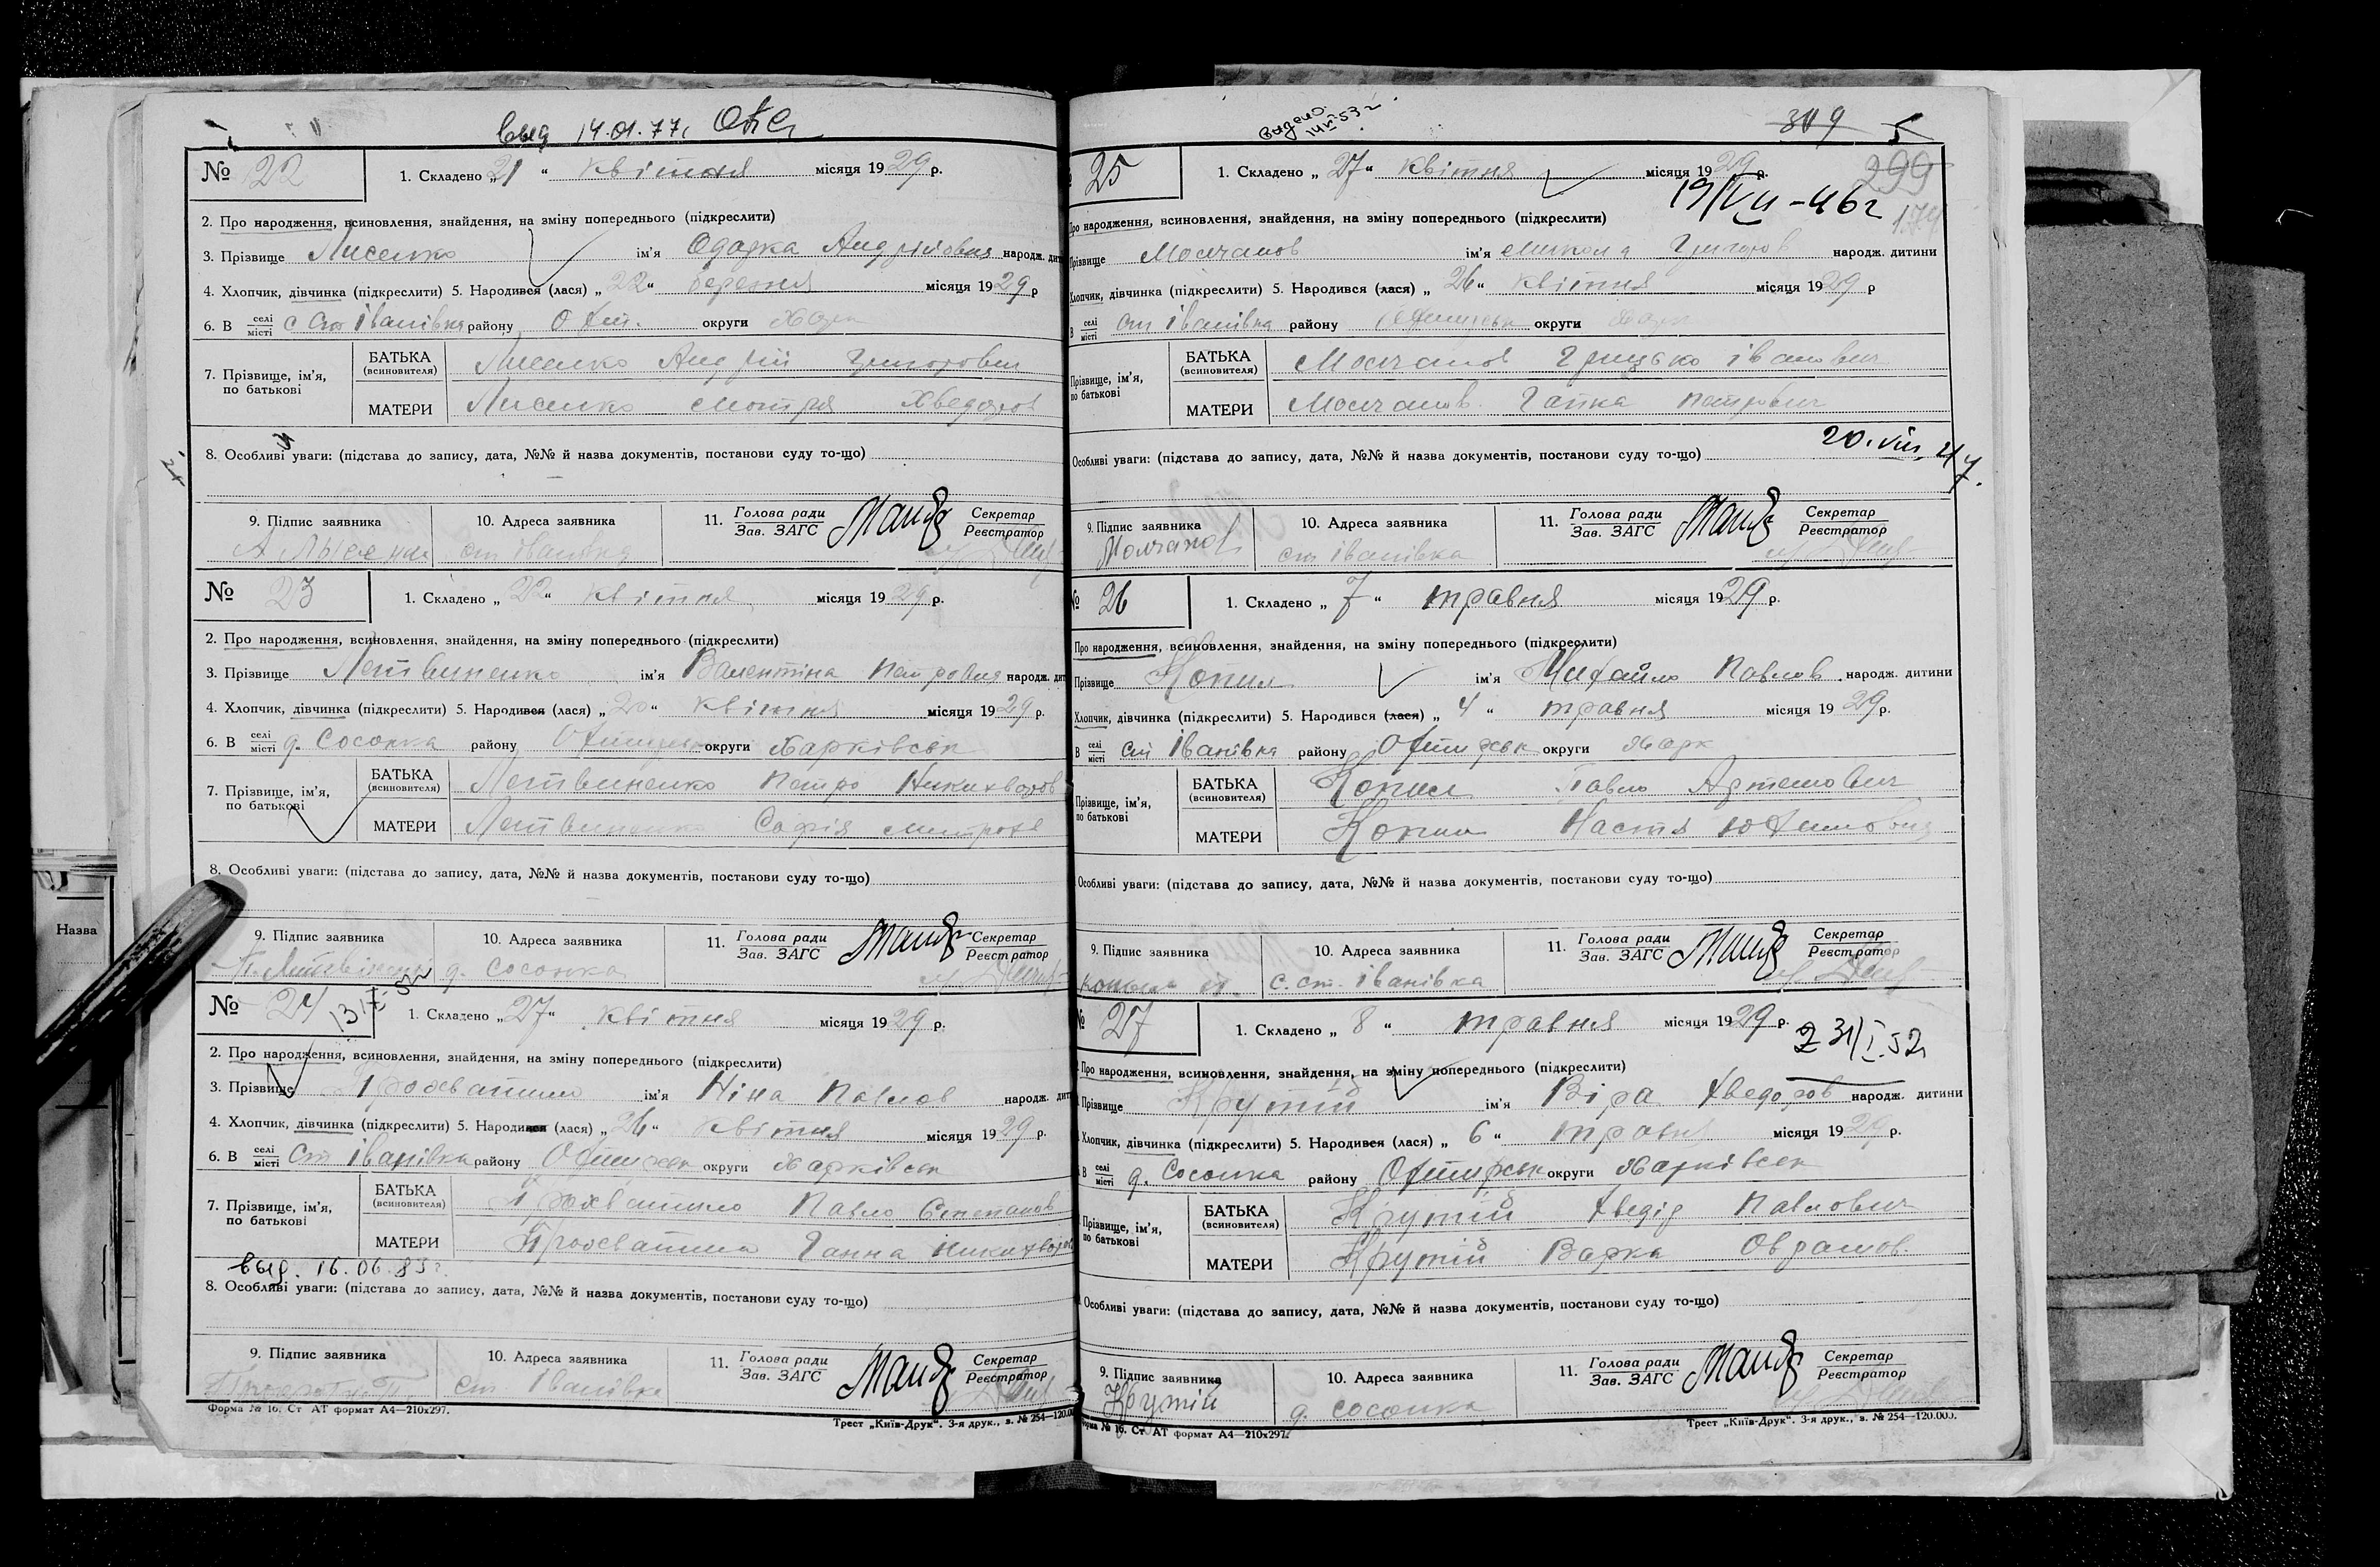 выд 14.01.77г
№ 22
1. Складено „ 21 “ квітня місяця 19 29 р.
2. Про народження, всиновлення, знайдення, на зміну попереднього (підкреслити)
3. Прізвище Лисенко ім'я Одарка Андріївна народж. дит
4. Хлопчик, дівчинка (підкреслити) 5. Народився (лася) „ 22 “ березня місяця 19 29 р
6. В селі місті с Ст Іванівка району Охт. округи Харк
7. Прізвище, ім'я, по батькові
БАТЬКА (всиновителя) Лисенко Андрій Григорович
МАТЕРИ Лисенко Мотря Хведоров
8. Особливі уваги: (підстава до запису, дата, №№ й назва документів, постанови суду то-що)
9. Підпис заявника
10. Адреса заявника ст Іванівка
11. Голова ради Зав. ЗАГС
Секретар Реєстратор
№ 23
1. Складено „ 22 “ квітня місяця 19 29 р.
2. Про народження, всиновлення, знайдення, на зміну попереднього (підкреслити)
3. Прізвище Летвиненко ім'я Валентіна Петровна народж. дит
4. Хлопчик, дівчинка (підкреслити) 5. Народився (лася) „ 20 “ квітня місяця 19 29 р.
6. В селі місті д. Сосонка району округи Харківськ
7. Прізвище, ім'я, по батькові
БАТЬКА (всиновителя) Летвиненко Петро Никихворов
МАТЕРИ Летвиненко Софія Митрохв
8. Особливі уваги: (підстава до запису, дата, №№ й назва документів, постанови суду то-що)
9. Підпис заявника
10. Адреса заявника д. Сосонка
11. Голова ради Зав. ЗАГС
Секретар Реєстратор
№ 24
1. Складено „ 27 “ квітня місяця 19 29 р.
2. Про народження, всиновлення, знайдення, на зміну попереднього (підкреслити)
3. Прізвище ім'я Ніна Павлов народж. дит
4. Хлопчик, дівчинка (підкреслити) 5. Народився (лася) „ 26 “ квітня місяця 19 29 р.
6. В селі місті Ст Іванівка району Охтирськ округи Харківськ
7. Прізвище, ім'я, по батькові
БАТЬКА (всиновителя) Павло Степанов
МАТЕРИ Ганна Никихворов
выд. 16.06.83г.
8. Особливі уваги: (підстава до запису, дата, №№ й назва документів, постанови суду то-що)
9. Підпис заявника
10. Адреса заявника ст Іванівка
11. Голова ради Зав. ЗАГС
Секретар Реєстратор
Форма № 16. Ст АТ формат А4—210х297.
Трест „Київ-Друк“. 3-я друк., з. № 254—120.00
309
299
174
19/VII-46г
25
1. Складено „ 27 “ квітня місяця 19 29 р.
Про народження, всиновлення, знайдення, на зміну попереднього (підкреслити)
Прізвище Молчанов ім'я Микола Григоров народж. дитини
Хлопчик, дівчинка (підкреслити) 5. Народився (лася) „ 26 “ квітня місяця 19 29 р
В селі місті ст Іванівка району Охтирськ округи Харк
Прізвище, ім'я, по батькові
БАТЬКА (всиновителя) Молчанов Грицько Іванович
МАТЕРИ Молчанов Гапка Петрович
20.VIII.47.
Особливі уваги: (підстава до запису, дата, №№ й назва документів, постанови суду то-що)
9. Підпис заявника Молчанов
10. Адреса заявника ст Іванівка
11. Голова ради Зав. ЗАГС
Секретар Реєстратор
№ 26
1. Складено „ 7 “ травня місяця 19 29 р.
Про народження, всиновлення, знайдення, на зміну попереднього (підкреслити)
Прізвище Копил ім'я Михайло Павлов народж. дитини
Хлопчик, дівчинка (підкреслити) 5. Народився (лася) „ 4 “ травня місяця 19 29 р.
В селі місті ст Іванівка району Охтирськ округи Харк
Прізвище, ім'я, по батькові
БАТЬКА (всиновителя) Копил Павло Артемович
МАТЕРИ Копил Настя Юхимовна
Особливі уваги: (підстава до запису, дата, №№ й назва документів, постанови суду то-що)
9. Підпис заявника
10. Адреса заявника с. ст. Іванівка
11. Голова ради Зав. ЗАГС
Секретар Реєстратор
№ 27
1. Складено „ 8 “ травня місяця 19 29 р.
31/I.52
Про народження, всиновлення, знайдення, на зміну попереднього (підкреслити)
Прізвище Крутій ім'я Віра Хведоров народж. дитини
Хлопчик, дівчинка (підкреслити) 5. Народився (лася) „ 6 “ травня місяця 19 29 р.
В селі місті д. Сосонка району Охтирськ округи Харківськ
Прізвище, ім'я, по батькові
БАТЬКА (всиновителя) Крутій Хведір Павлович
МАТЕРИ Крутій Варка Оврамов.
Особливі уваги: (підстава до запису, дата, №№ й назва документів, постанови суду то-що)
9. Підпис заявника Крутій
10. Адреса заявника д. Сосонка
11. Голова ради Зав. ЗАГС
Секретар Реєстратор
Форма № 16. Ст АТ формат А4—210х297.
Трест „Київ-Друк“. 3-я друк., з. № 254—120.000.
Назва